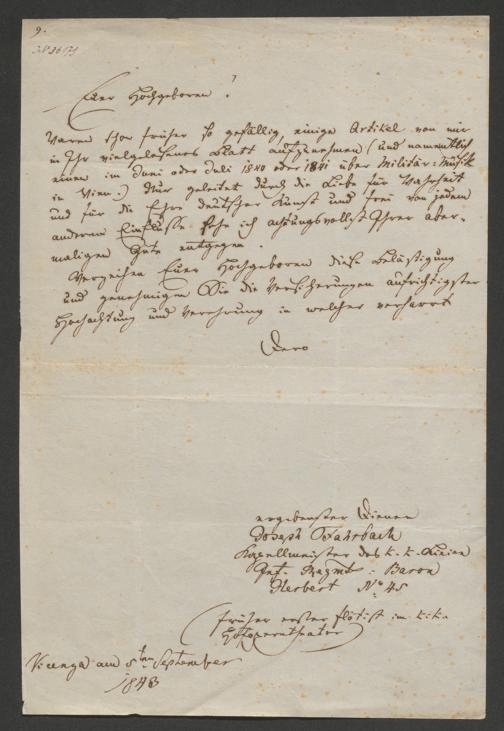 9.
Euer Hochgeboren!
Waren schon früher so gefällig, einige Artikel von mir
in Ihr vielgelesenes Blatt aufzunehmen (und namentlich
einen im Juni oder Juli 1840 oder 1841 über Militär=Musik
in Wien.) Nur geleitet durch die Liebe für Wahrheit
und für die Ehre deutscher Kunst und frei von jedem
anderen Einflusse sehe ich achtungsvollst Ihrer aber-
maligen Güte entgegen.
Verzeihen Euer Hochgeboren diese Belästigung
und genehmigen Sie die Versicherungen aufrichtigster
Hochachtung und Verehrung in welcher verharrt
Dero
ergebenster Diener
Joseph Fahrbach
Kapellmeister des k. k. Linien
Inf. Regmt: Baron
Herbert No 45
(früher erster Flötist im k. k.
Hofoperntheater)
Vicenza am 5ten September
1843